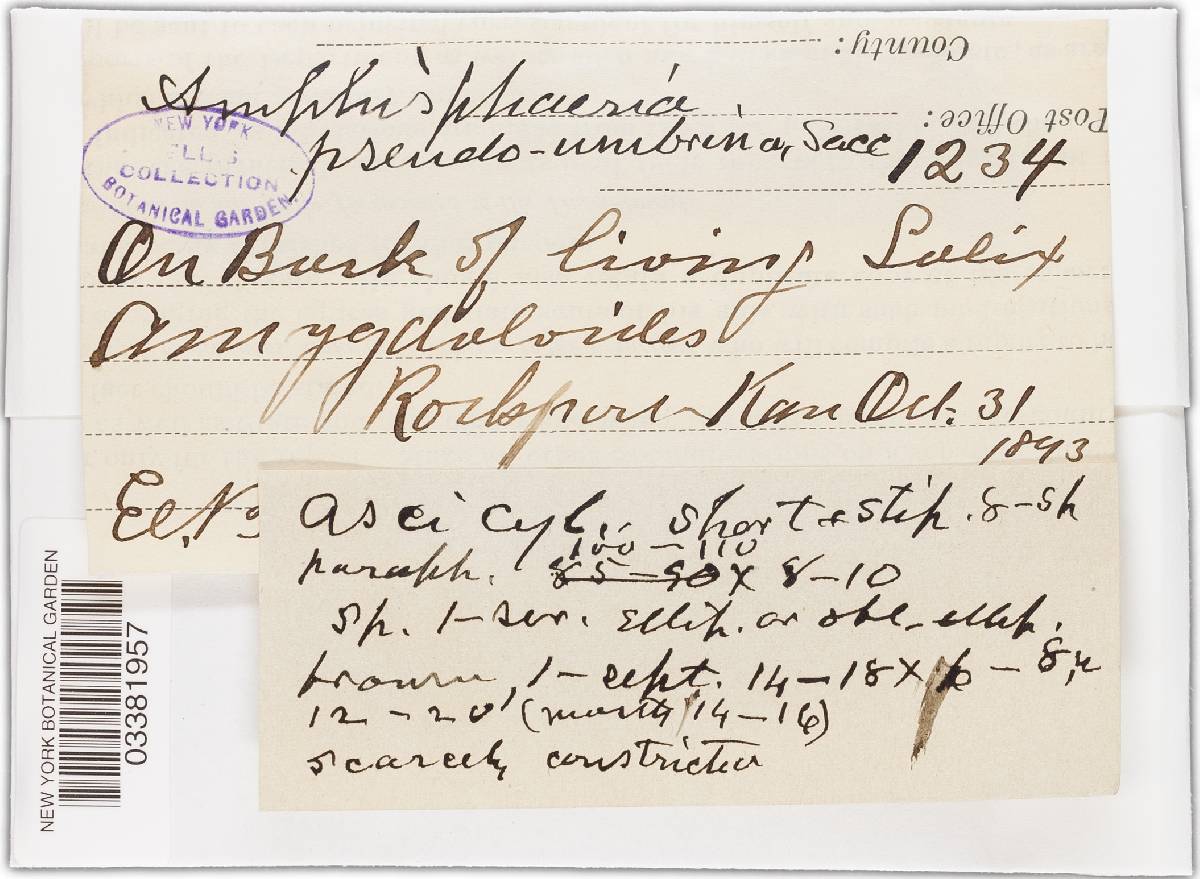 County:
Post Office:
Amphisphaeria
pseudo-umbrina, Sacc
1234
NEW YORK
ELLIS
COLLECTION
BOTANICAL GARDEN.
On Bark of living Salix
Amygdaloides
Rockport Kan Oct. 31
1893
Asci cyl., short stip. 8-sp
paraph. 85-90 x 8-10
100-110
sp. 1-ser. ellip. or obl-ellip.
brown, 1-sept. 14-18 x 6-8µ
12-20 (mostly 14-16)
scarcely constricted
NEW YORK BOTANICAL GARDEN
03381957